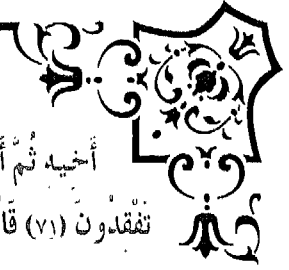 أَخيهِ ثُمَّ أَ
تَفْقِدُونَ (٧١) قَا